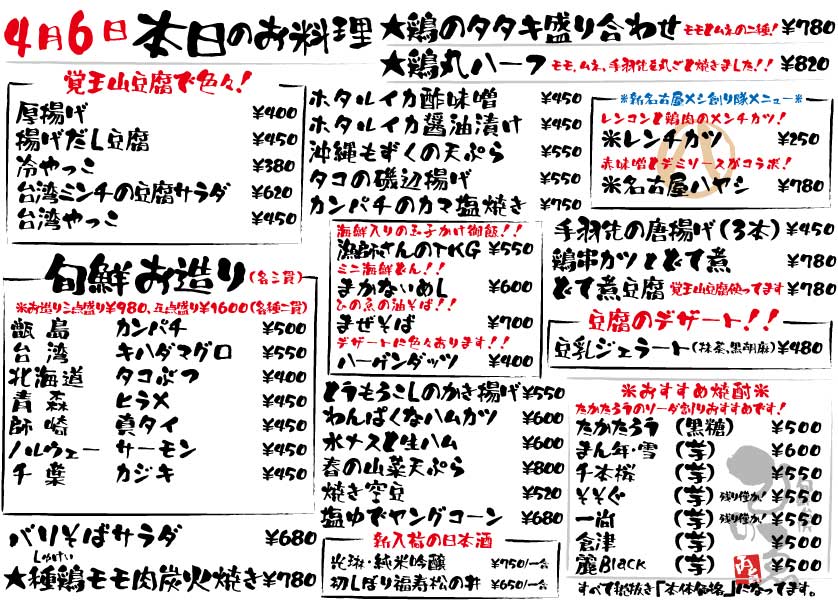 4月6日 本日のお料理
★鶏のタタキ盛り合わせ モモとムネの二種! ¥780
★鶏丸ハーフ モモ、ムネ、手羽先を丸ごと焼きました!! ¥820
覚王山豆腐で色々!
厚揚げ ¥400
揚げだし豆腐 ¥450
冷やっこ ¥380
台湾ミンチの豆腐サラダ ¥620
台湾やっこ ¥450
ホタルイカ酢味噌 ¥450
ホタルイカ醤油漬け ¥450
沖縄もずくの天ぷら ¥550
タコの磯辺揚げ ¥550
カンパチのカマ塩焼き ¥750
※新名古屋メシ創り隊メニュー※
レンコンと鶏肉のメンチカツ!
※レンチカツ ¥250
赤味噌とデミソースがコラボ!
※名古屋ハヤシ ¥780
旬鮮お造り(各二貫)
※お造り三点盛り¥980、五点盛り¥1600(各種二貫)
甑島 カンパチ ¥500
台湾 キハダマグロ ¥550
北海道 タコぶつ ¥400
青森 ヒラメ ¥450
師崎 真タイ ¥450
ノルウェー サーモン ¥450
千葉 カジキ ¥450
海鮮入りの玉子かけ御飯!!
漁師さんのTKG ¥550
ミニ海鮮どん!!
まかないめし ¥600
ひの魚の油そば!!
まぜそば ¥700
デザートに色々あります!!
ハーゲンダッツ ¥400
手羽先の唐揚げ(3本) ¥450
鶏串カツとどて煮 ¥780
どて煮豆腐 覚王山豆腐使ってます ¥780
豆腐のデザート!!
豆乳ジェラート(抹茶、黒胡麻) ¥480
とうもろこしのかき揚げ ¥550
わんぱくなハムカツ ¥600
水ナスと生ハム ¥600
春の山菜天ぷら ¥800
焼き空豆 ¥520
塩ゆでヤングコーン ¥680
※おすすめ焼酎※
たかたろうのソーダ割りおすすめです!
たかたろう (黒糖) ¥500
まん年・雪 (芋) ¥600
千本桜 (芋) ¥500
そそぐ (芋) 残り僅か! ¥550
一尚 (芋) 残り僅か! ¥550
倉津 (芋) ¥500
麗Black (芋) ¥500
バリそばサラダ ¥680
しゅけい
★種鶏モモ肉炭火焼き ¥780
新入荷の日本酒
光琳・純米吟醸 ¥750/一合
初しぼり福寿松の井 ¥650/一合
すべて税抜き「本体価格」になってます。